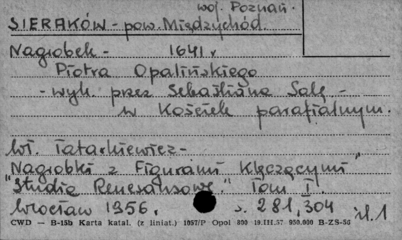 woj. Poznań.
SIERAKÓW - pow. Międzychód.
Nagrobek - 1641 r
Piotra Opalińskiego
- wyk. przez Sebastiana Salę -
w Kościele parafialnym.
Wł. Tatarkiewicz -
Nagrobki z Figurami Klęczącymi"
"Studia Renesansowe." Tom I.
Wrocław 1956. s. 281,304 il. 1
CWD — B-15b Karta katal. (z liniat.) 1057/P Opol 800 19.III.57 950.000 B-ZS-56